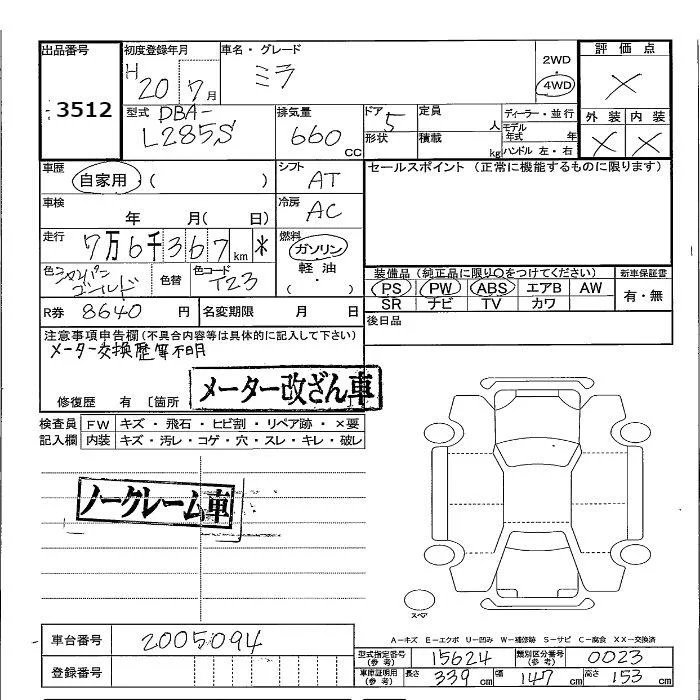 出品番号 初度登録年月 車名・グレード 評価点
H 20 7月 ミラ 2WD 4WD ×
3512 型式 DBA- L285S 排気量 660 cc ドア 5 定員 人 ディーラー・並行 外装 内装
形状 積載 kg モデル年式 年 × ×
ハンドル 左・右
車歴 自家用・( ) シフト AT セールスポイント (正常に機能するものに限ります)
車検 年 月( 日) 冷房 AC
走行 7万6千367km * 燃料 ガソリン
軽油
( ・ )
色 シャンパンゴールド 色替 色コード T23 装備品 (純正品に限り○をつけてください) 新車保証書
PS PW ABS エアB AW 有・無
SR ナビ TV カワ
R券 8640 円 名変期限 月 日 後日品
注意事項申告欄(不具合内容等は具体的に記入して下さい)
メーター交換歴等不明
メーター改ざん車
修復歴 有 〔箇所
検査員記入欄 FW キズ・飛石・ヒビ割・リペア跡・×要
内装 キズ・汚レ・コゲ・穴・スレ・キレ・破レ
ノークレーム車
スペア
A-キズ E-エクボ U-凹み W-補修跡 S-サビ C-腐食 XX-交換済
車台番号 2005094 型式指定番号(参考) 15624 類別区分番号(参考) 0023
登録番号 車庫証明用(参考) 長さ 339 cm 巾 147 cm 高さ 153 cm